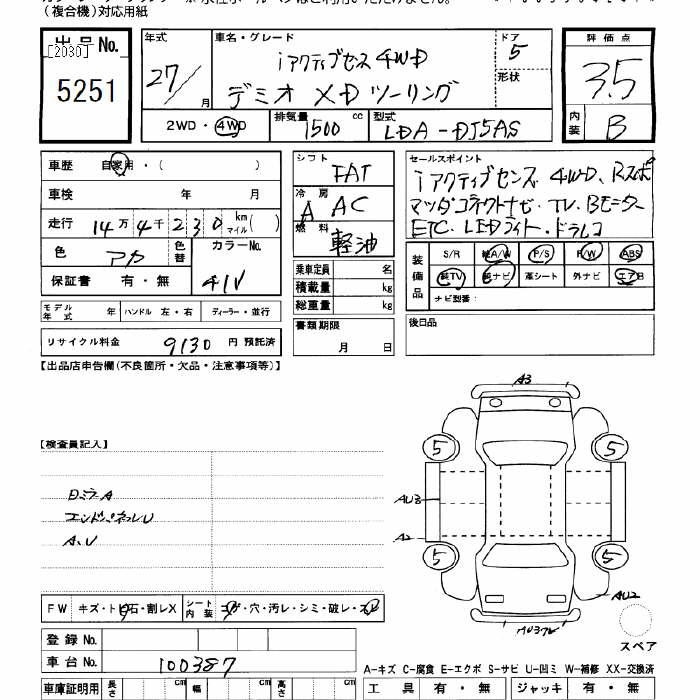 (複合機)対応用紙
出品No.
[2030]
5251
年式
27/
月
車名・グレード
iアクティブセンス 4WD
デミオ XD ツーリング
ドア
5
形状
評価点
3.5
内装
B
2WD・4WD
排気量
1500 cc
型式
LDA-DJ5AS
車歴 自家用・( )
車検 年 月
走行 14万4千230 km マイル( )
色 アカ 色替 カラーNo.
保証書 有・無 41V
モデル年式 年 ハンドル 左・右 ディーラー・並行
リサイクル料金 9130 円 預託済
シフト FAT
冷房 A AC
燃料 軽油
乗車定員 名
積載量 kg
総重量 kg
書類期限
月 日
セールスポイント
iアクティブセンス、4WD、Rスポ
マッダコネクトナビ・TV、Bモニター
ETC、LEDライト・ドラレコ
装備品
S/R 純A/W P/S P/W ABS
純TV 純ナビ 革シート 外ナビ エアB
ナビ型番:
後日品
【出品店申告欄(不良箇所・欠品・注意事項等)】
【検査員記入】
日ミラA
エンドパネルU
A、U
FW キズ・トビ石・割レX シート内装 コゲ・穴・汚レ・シミ・破レ・スレ
登録No.
車台No. 100387
車庫証明用 長さ cm 幅 cm 高さ cm
A3
5
5
AU3
A2
5
5
AU2
スペア
A-キズ C-腐食 E-エクボ S-サビ U-凹ミ W-補修 XX-交換済
工具 有・無 ジャッキ 有・無